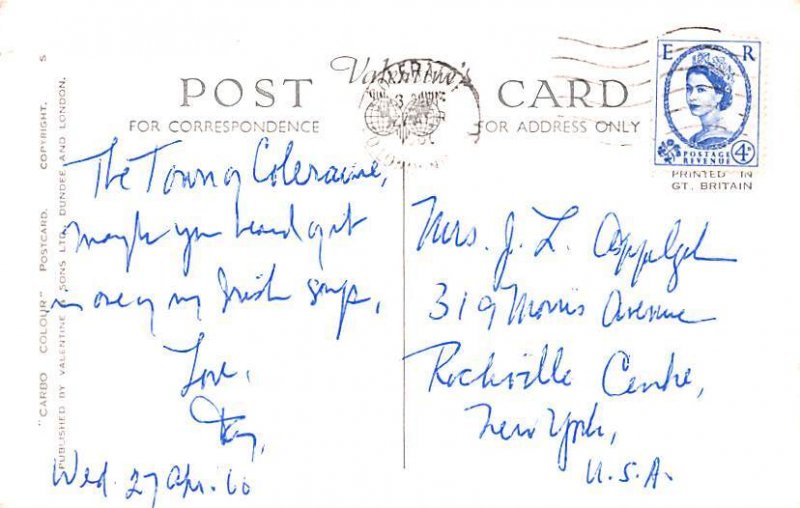 POST
Valentine's
CARD
FOR CORRESPONDENCE
FOR ADDRESS ONLY
E R
POSTAGE
REVENUE
4D
PRINTED IN
GT. BRITAIN
"CARBO COLOUR" POSTCARD. COPYRIGHT. S
PUBLISHED BY VALENTINE & SONS LTD, DUNDEE AND LONDON.
The Town of Coleraine,
maybe you heard of it
in one of my Irish songs,
Love,
Wed. 27 Apr. 60
Mrs. J. L.
319 Morris Avenue
Rockville Centre,
New York,
U.S.A.